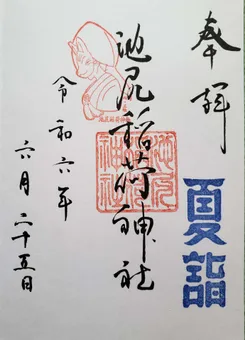 奉拝
夏詣
池尻稲荷神社
池尻稲荷神社
令和六年
六月二十五日